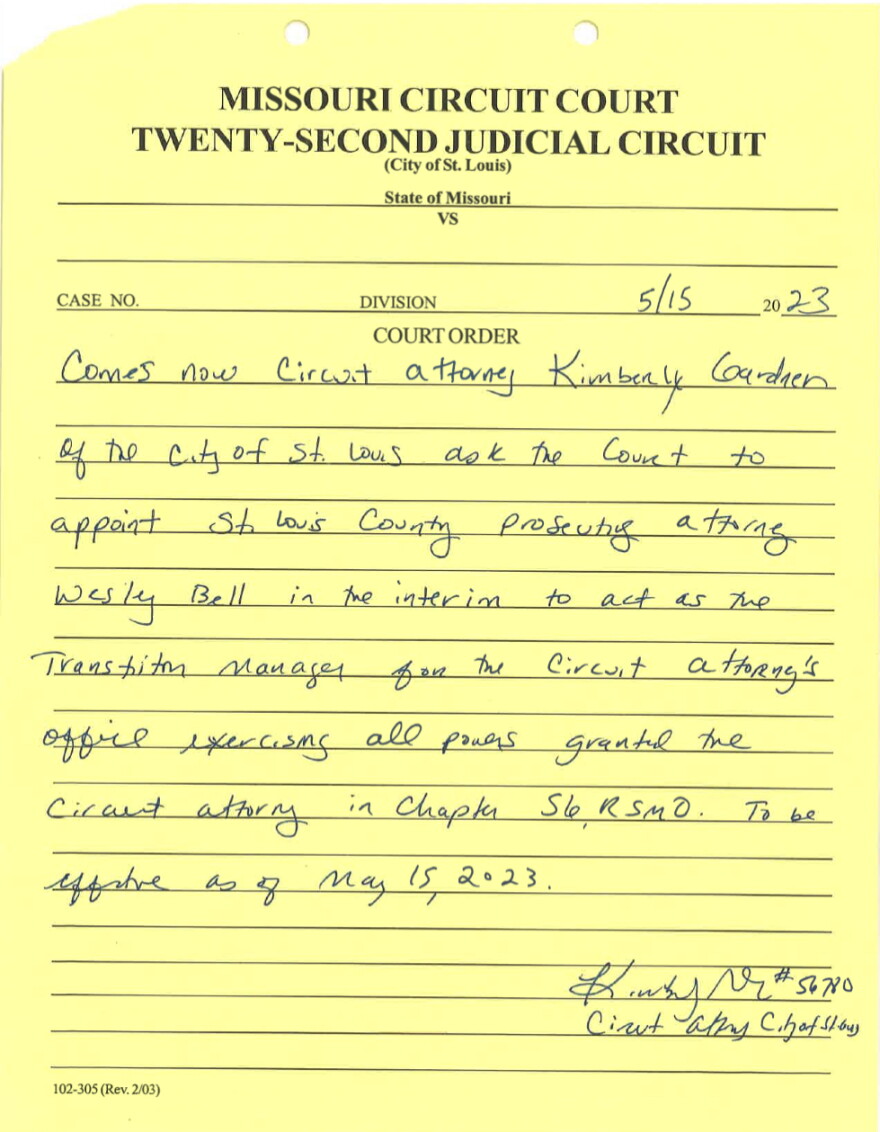 MISSOURI CIRCUIT COURT
TWENTY-SECOND JUDICIAL CIRCUIT
(City of St. Louis)
State of Missouri
VS
CASE NO. DIVISION 5/15 2023
COURT ORDER
Comes now Circuit attorney Kimberly Gardner
of the City of St. Louis ask the Court to
appoint St. Louis County prosecuting attorney
Wesley Bell in the interim to act as the
Transition Manager for the Circuit attorney's
office exercising all powers granted the
Circuit attorney in Chapter 56, RSMO. To be
effective as of May 15, 2023.
#56780
Circuit Attorney City of St. Louis
102-305 (Rev. 2/03)